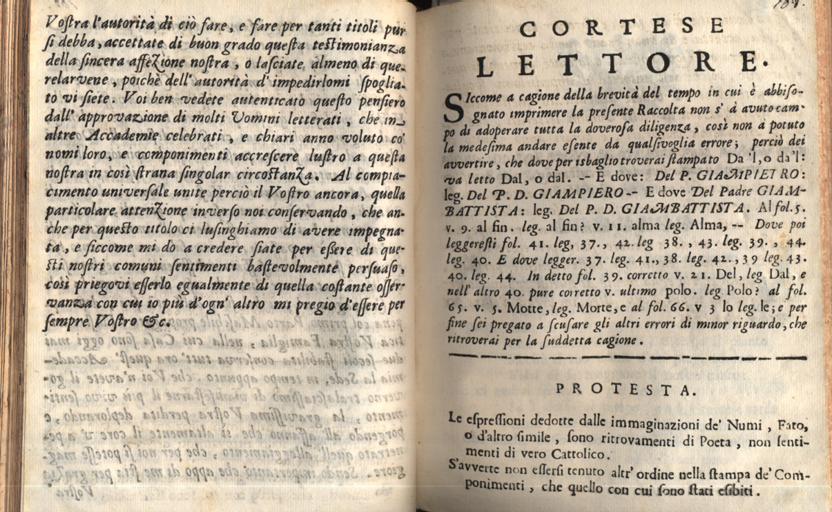 Vostra l'autorità di ciò fare, e fare per tanti titoli pur
si debba, accettate di buon grado questa testimonianza
della sincera affezione nostra, o lasciate almeno di que-
relarvene, poichè dell'autorità d'impedirlomi spoglia-
to vi siete. Voi ben vedete autenticato questo pensiero
dall'approvazione di molti Uomini letterati, che in
altre Accademie celebrati, e chiari anno voluto co'
nomi loro, e componimenti accrescere lustro a questa
nostra in così strana singolar circostanza. Al compia-
cimento universale unite perciò il Vostro ancora, quella
particolare attenzione inverso noi conservando, che an-
che per questo titolo ci lusinghiamo di avere impegna-
ta, e siccome mi do a credere siate per essere di que-
sti nostri comuni sentimenti bastevolmente persuaso,
così priegovi esserlo egualmente di quella costante osser-
vanza con cui io più d'ogn' altro mi pregio d'essere per
sempre Vostro &c.
CORTESE
LETTORE.
SIccome a cagione della brevità del tempo in cui è abbiso-
gnato imprimere la presente Raccolta non s' à avuto cam-
po di adoperare tutta la doverosa diligenza, così non a potuto
la medesima andare esente da qualsivoglia errore; perciò dei
avvertire, che dove per isbaglio troverai stampato Da 'l, o da'l:
va letto Dal, o dal. -- E dove: Del P. GIAMPIETRO:
leg. Del P. D. GIAMPIERO -- E dove Del Padre GIAM-
BATTISTA: leg. Del P. D. GIAMBATTISTA. Al fol. 5.
v. 9. al fin. leg. al fin? v. 11. alma leg. Alma, -- Dove poi
leggeresti fol. 41. leg, 37., 42. leg 38., 43. leg. 39., 44.
leg. 40. E dove legger. 37. leg. 41., 38. leg. 42., 39 leg. 43.
40. leg. 44. In detto fol. 39. corretto v. 21. Del, leg Dal, e
nell'altro 40. pure corretto v. ultimo polo. leg. Polo? al fol.
65. v. 5. Motte, leg. Morte, e al fol. 66. v 3 lo leg. le; e per
fine sei pregato a scusare gli altri errori di minor riguardo, che
ritroverai per la suddetta cagione.
PROTESTA.
Le espressioni dedotte dalle immaginazioni de' Numi, Fato,
o d'altro simile, sono ritrovamenti di Poeta, non senti-
menti di vero Cattolico.
S'avverte non essersi tenuto altr' ordine nella stampa de' Com-
ponimenti, che quello con cui sono stati esibiti.